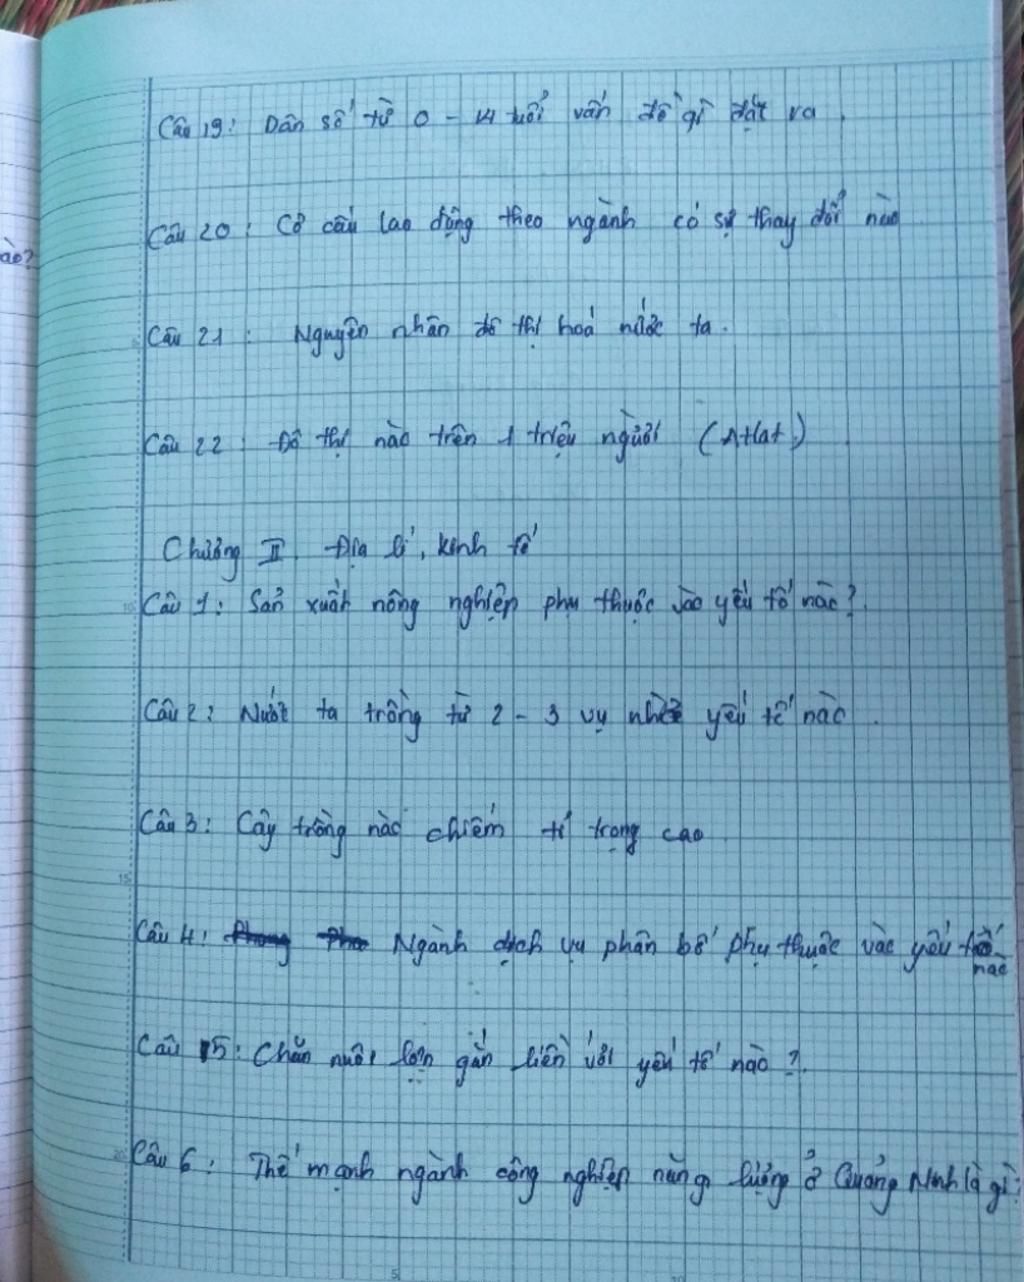 Câu 19: Dân số từ 0 - 14 tuổi vấn đề gì đặt ra.
Câu 20: Cơ cấu lao động theo ngành có sự thay đổi nào
ào?
Câu 21: Nguyên nhân đô thị hoá nước ta.
Câu 22: Đô thị nào trên 1 triệu người (Atlat)
Chương II. Địa lí, kinh tế
Câu 1: Sản xuất nông nghiệp phụ thuộc vào yếu tố nào?
Câu 2: Nước ta trồng từ 2 - 3 vụ nhờ yếu tố nào.
Câu 3: Cây trồng nào chiếm tỉ trọng cao.
Câu 4: Ngành dịch vụ phân bố phụ thuộc vào yếu tố
nào
Câu 5: Chăn nuôi lợn gắn liền với yếu tố nào?
Câu 6: Thế mạnh ngành công nghiệp năng lượng ở Quảng Ninh là gì?
5
10
15
20